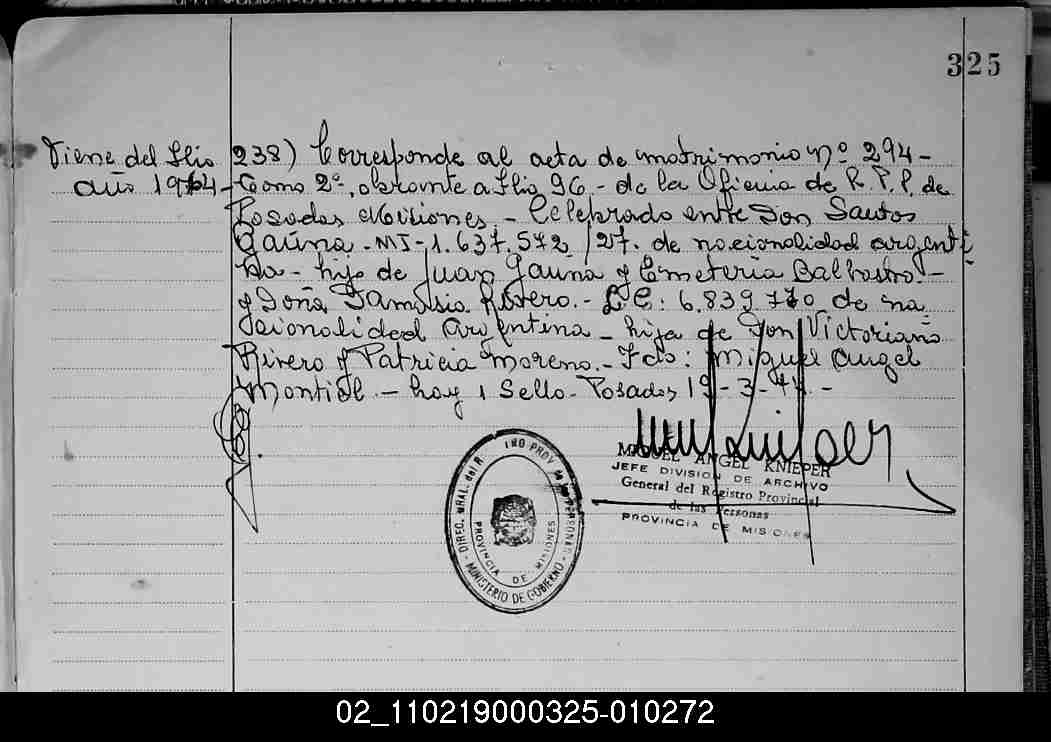 325
Viene del flio 238) Corresponde al acta de matrimonio nº 294-
año 1964 - Tomo 2º, obrante a flio 96 - de la Oficina de R. P. P. de
Posadas Misiones - Celebrado entre Don Santos
Gauna - MI - 1.637.572 / 27. de nacionalidad argenti
na - hijo de Juan Gauna y Emeteria Balbastro -
y Doña Damasia Rivero. - L C: 6.839.770 de na
cionalidad Argentina - hija de Don Victoriano
Rivero y Patricia Moreno. - Fdo: Miguel Angel
Montiel - hay 1 Sello - Posadas 19-3-77 -
MIGUEL ANGEL KNIEPER
JEFE DIVISION DE ARCHIVO
General del Registro Provincial
de las Personas
PROVINCIA DE MISIONES
DIREC. GRAL. del R
PROV
PERSONAS
MINISTERIO DE GOBIERNO
PROVINCIA DE MISIONES
02_110219000325-010272